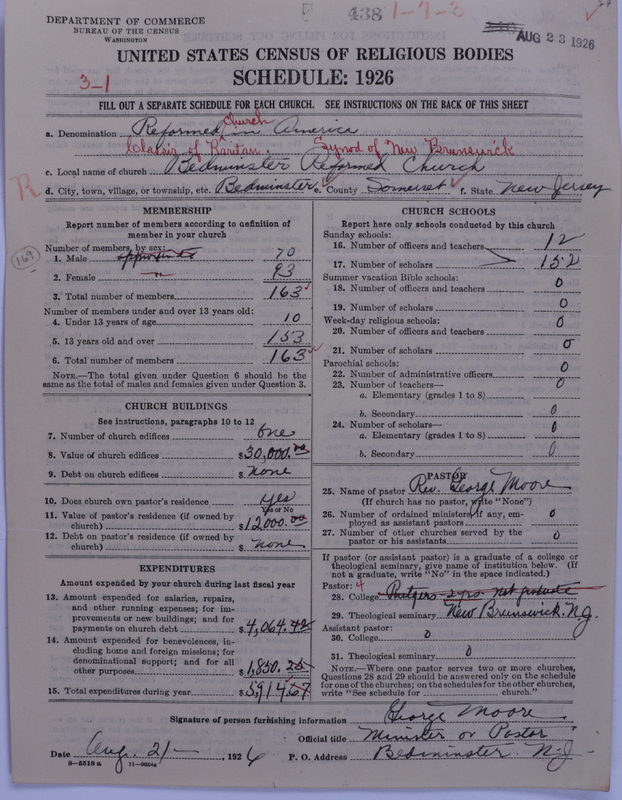 DEPARTMENT OF COMMERCE
BUREAU OF THE CENSUS
WASHINGTON
438 1-7-3
AUG 23 1926
UNITED STATES CENSUS OF RELIGIOUS BODIES
SCHEDULE: 1926
3-1
FILL OUT A SEPARATE SCHEDULE FOR EACH CHURCH. SEE INSTRUCTIONS ON THE BACK OF THIS SHEET
a. Denomination Reformed Church in America
Classis of Raritan. Synod of New Brunswick
c. Local name of church Bedminster Reformed Church
R
d. City, town, village, or township, etc. Bedminster e. County Somerset f. State New Jersey
169
MEMBERSHIP
Report number of members according to definition of member in your church
Number of members, by sex:
1. Male 70
2. Female 93
3. Total number of members 163
Number of members under and over 13 years old:
4. Under 13 years of age 10
5. 13 years old and over 153
6. Total number of members 163
NOTE.—The total given under Question 6 should be the same as the total of males and females given under Question 3.
CHURCH BUILDINGS
See instructions, paragraphs 10 to 12
7. Number of church edifices one
8. Value of church edifices $30,000.00
9. Debt on church edifices $ none
10. Does church own pastor's residence yes
Yes or No
11. Value of pastor's residence (if owned by church) $12000.00
12. Debt on pastor's residence (if owned by church) $ none
EXPENDITURES
Amount expended by your church during last fiscal year
13. Amount expended for salaries, repairs, and other running expenses; for improvements or new buildings; and for payments on church debt $4,064.42
14. Amount expended for benevolences, including home and foreign missions; for denominational support; and for all other purposes $1,850.25
15. Total expenditures during year $5914.67
CHURCH SCHOOLS
Report here only schools conducted by this church
Sunday schools:
16. Number of officers and teachers 12
17. Number of scholars 152
Summer vacation Bible schools:
18. Number of officers and teachers 0
19. Number of scholars 0
Week-day religious schools:
20. Number of officers and teachers 0
21. Number of scholars 0
Parochial schools:
22. Number of administrative officers 0
23. Number of teachers— 0
a. Elementary (grades 1 to 8)
b. Secondary 0
24. Number of scholars— 0
a. Elementary (grades 1 to 8) 0
b. Secondary 0
PASTOR
25. Name of pastor Rev. George Moore
(If church has no pastor, write "None")
26. Number of ordained ministers, if any, employed as assistant pastors 0
27. Number of other churches served by the pastor or his assistants 0
If pastor (or assistant pastor) is a graduate of a college or theological seminary, give name of institution below. (If not a graduate, write "No" in the space indicated.)
Pastor: 4
28. College Rutgers - 2 yrs. not graduate
29. Theological seminary New Brunswick, N.J.
Assistant pastor:
30. College 0
31. Theological seminary 0
NOTE.—Where one pastor serves two or more churches, Questions 28 and 29 should be answered only on the schedule for one of the churches; on the schedules for the other churches, write "See schedule for church."
Signature of person furnishing information George Moore
Official title Minister or Pastor
Date Aug. 21 —, 1926 P. O. Address Bedminster N.J.
8—5518 a 11—9664a